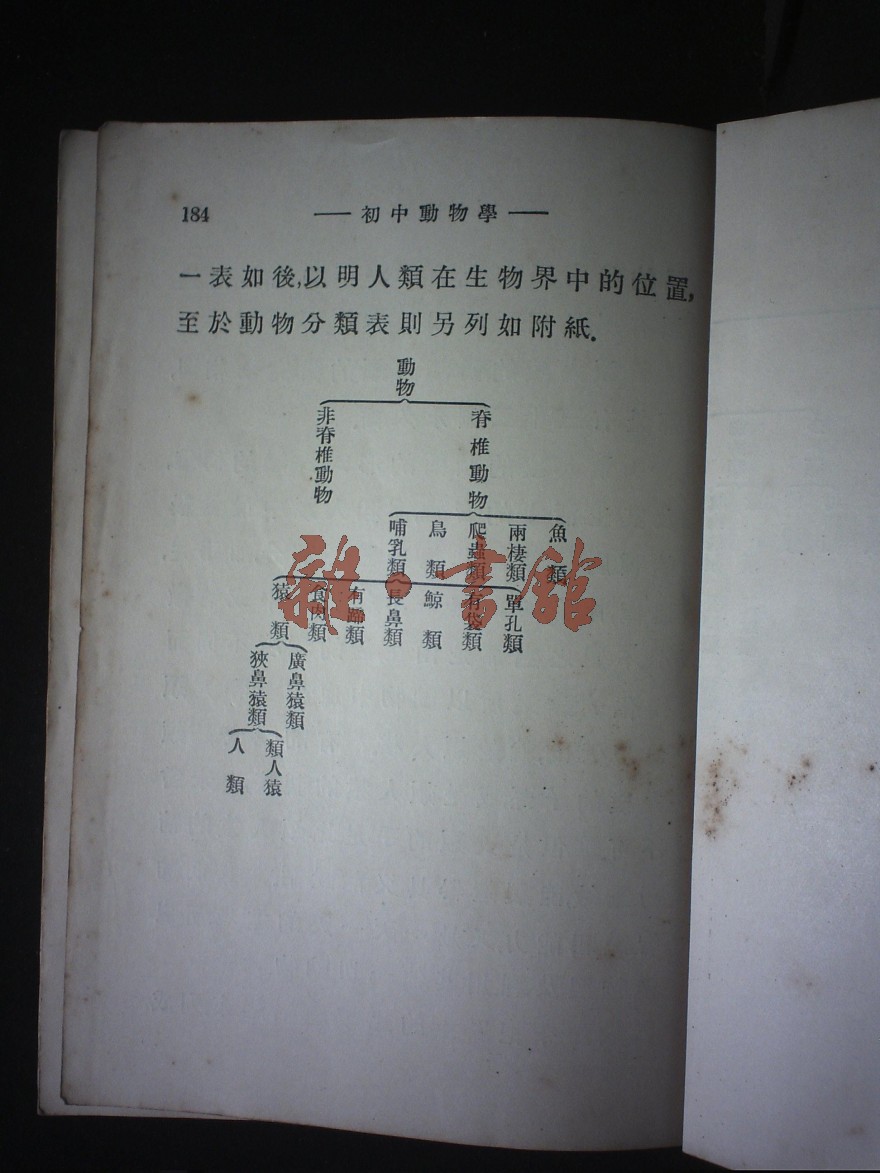 184 —初中動物學—
一表如後,以明人類在生物界中的位置,
至於動物分類表則另列如附紙.
動物
非脊椎動物
脊椎動物
哺乳類
鳥類
爬蟲類
兩棲類
魚類
猿類
食肉類
有蹄類
長鼻類
鯨類
有袋類
單孔類
狹鼻猿類
廣鼻猿類
人類
類人猿
雜·書館